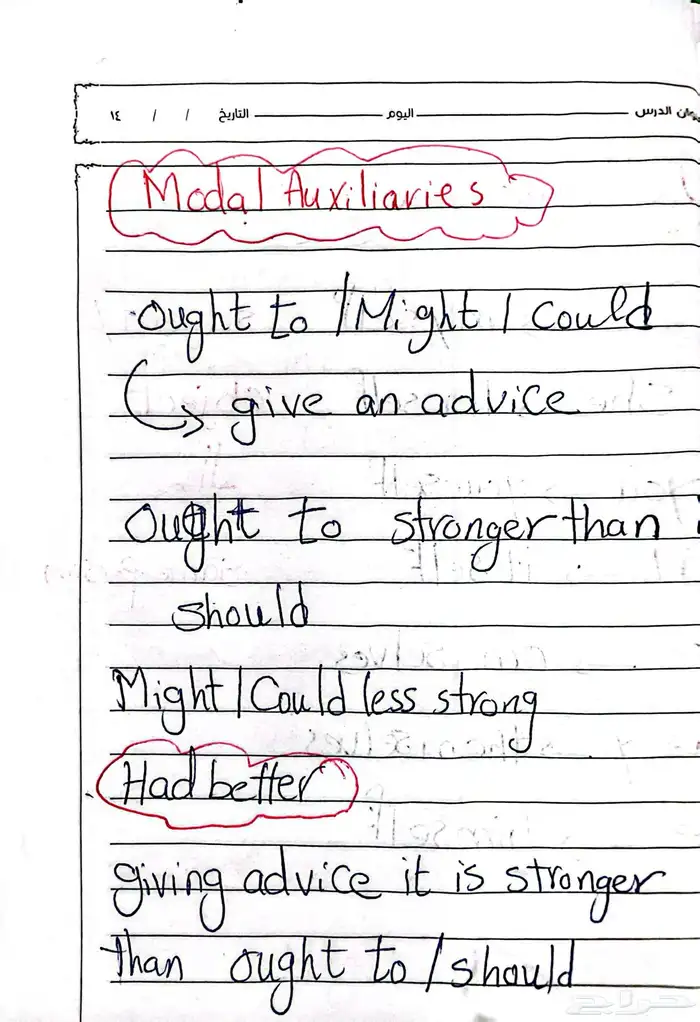 عنوان الدرس اليوم التاريخ / / ١٤
Modal Auxiliaries
Ought to / Might / Could
give an advice
Ought to stronger than
should
Might / Could less strong
Had better
giving advice it is stronger
than ought to / should
حراج